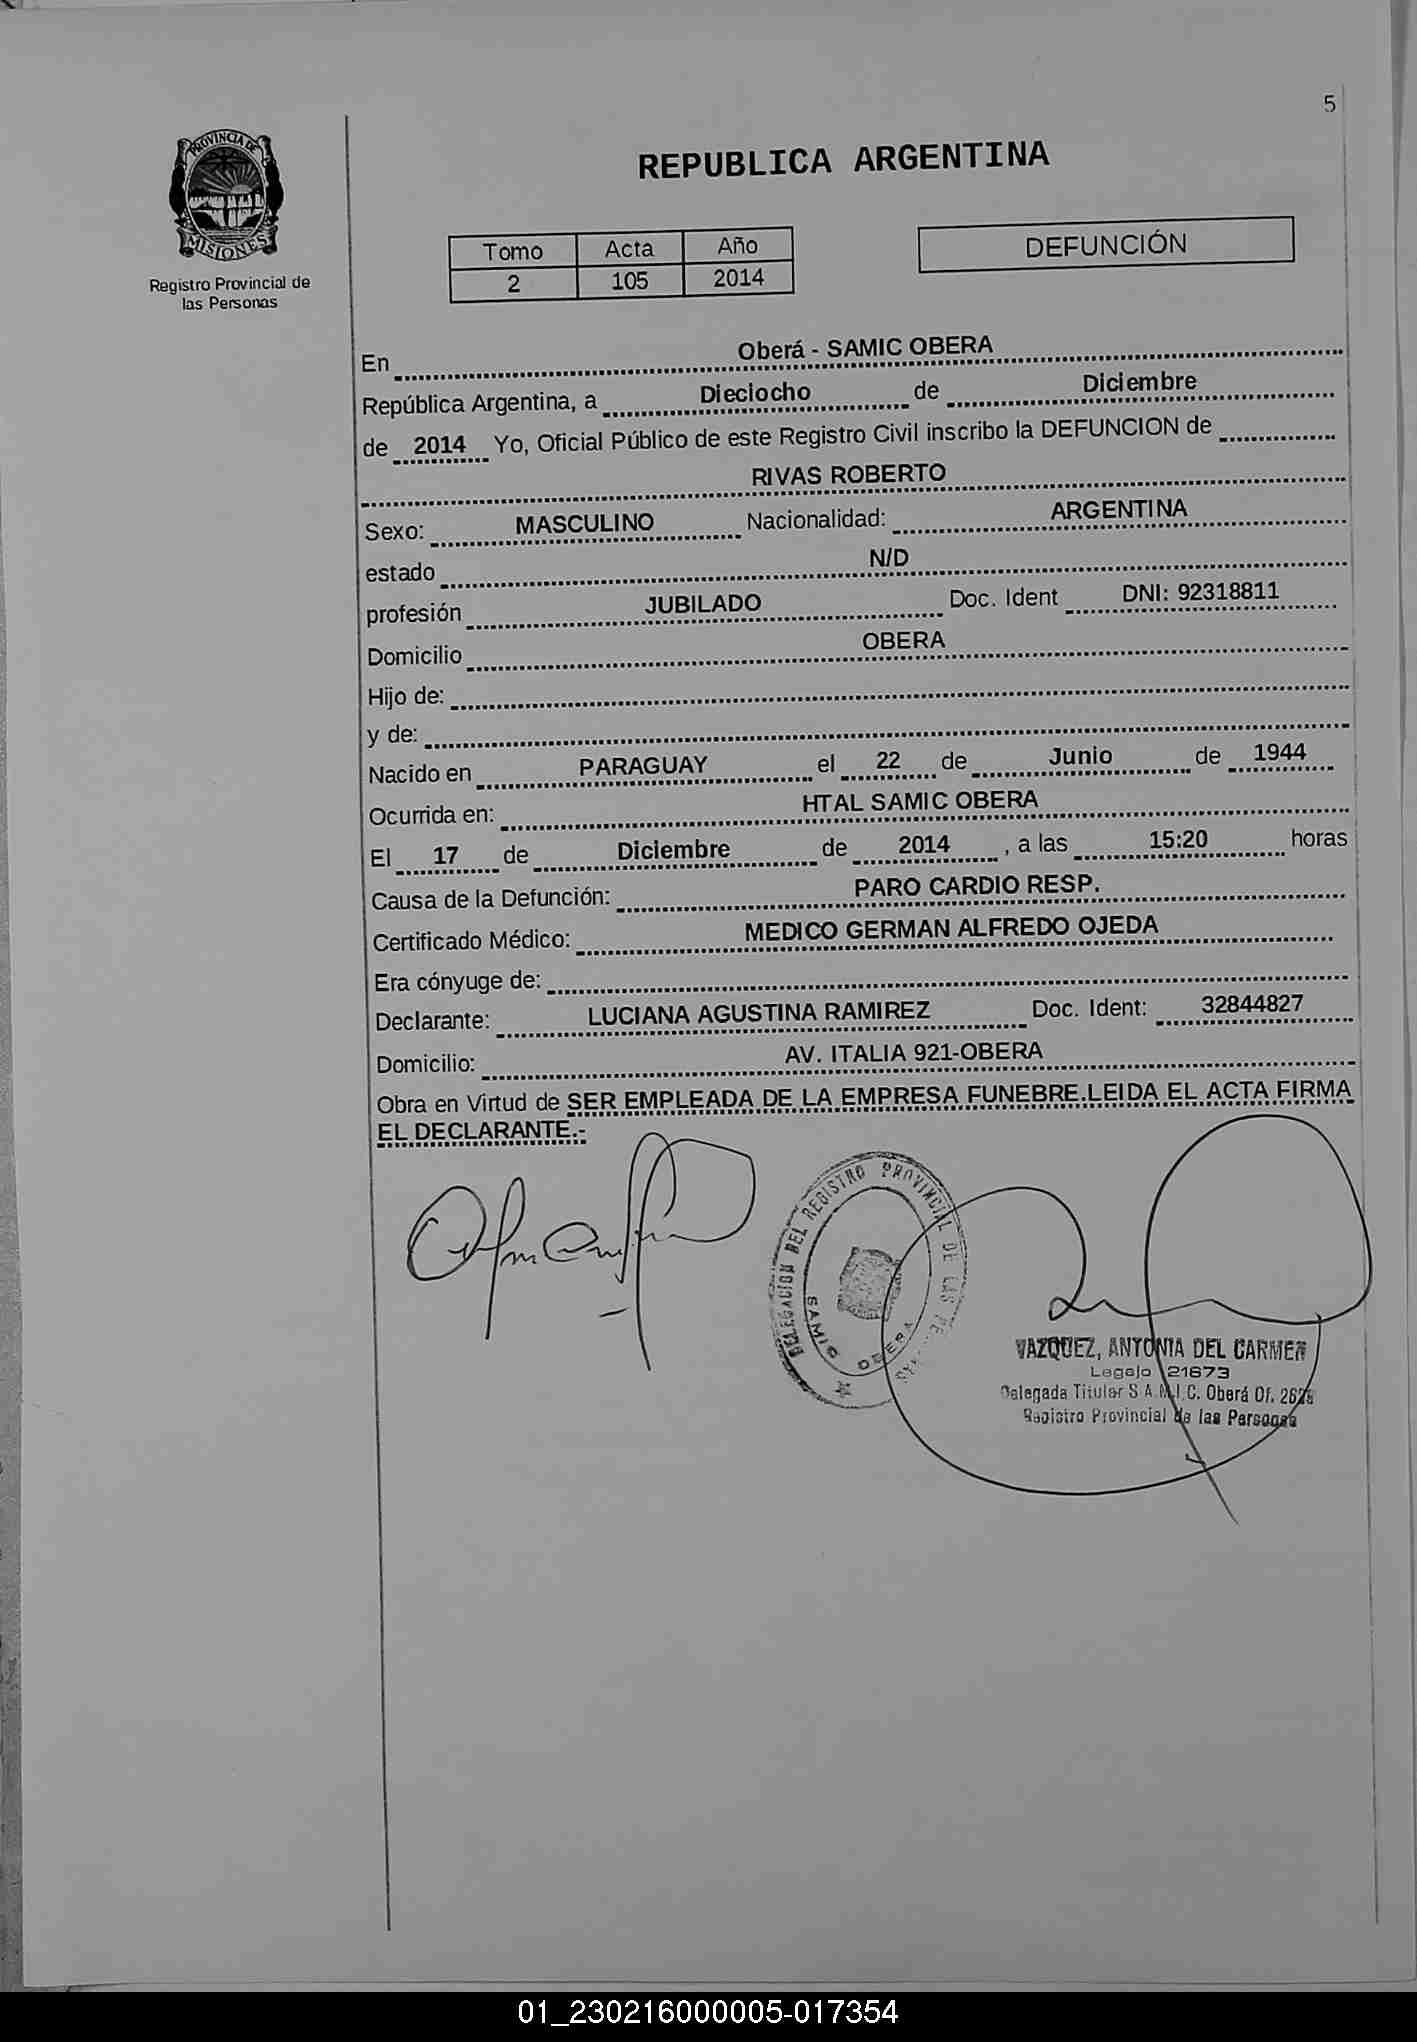 5
PROVINCIA DE
MISIONES
Registro Provincial de
las Personas
REPUBLICA ARGENTINA
Tomo Acta Año
2 105 2014
DEFUNCIÓN
En Oberá - SAMIC OBERA
República Argentina, a Dieciocho de Diciembre
de 2014 Yo, Oficial Público de este Registro Civil inscribo la DEFUNCION de
RIVAS ROBERTO
Sexo: MASCULINO Nacionalidad: ARGENTINA
estado N/D
profesión JUBILADO Doc. Ident DNI: 92318811
Domicilio OBERA
Hijo de:
y de:
Nacido en PARAGUAY el 22 de Junio de 1944
Ocurrida en: HTAL SAMIC OBERA
El 17 de Diciembre de 2014 , a las 15:20 horas
Causa de la Defunción: PARO CARDIO RESP.
Certificado Médico: MEDICO GERMAN ALFREDO OJEDA
Era cónyuge de:
Declarante: LUCIANA AGUSTINA RAMIREZ Doc. Ident: 32844827
Domicilio: AV. ITALIA 921-OBERA
Obra en Virtud de SER EMPLEADA DE LA EMPRESA FUNEBRE.LEIDA EL ACTA FIRMA
EL DECLARANTE.-
DELEGACION DEL REGISTRO PROVINCIAL DE LAS
SAMIC OBERA
VAZQUEZ, ANTONIA DEL CARMEN
Legajo 21673
Delegada Titular S.A.M.I.C. Oberá Of.
Registro Provincial de las Personas
01_230216000005-017354